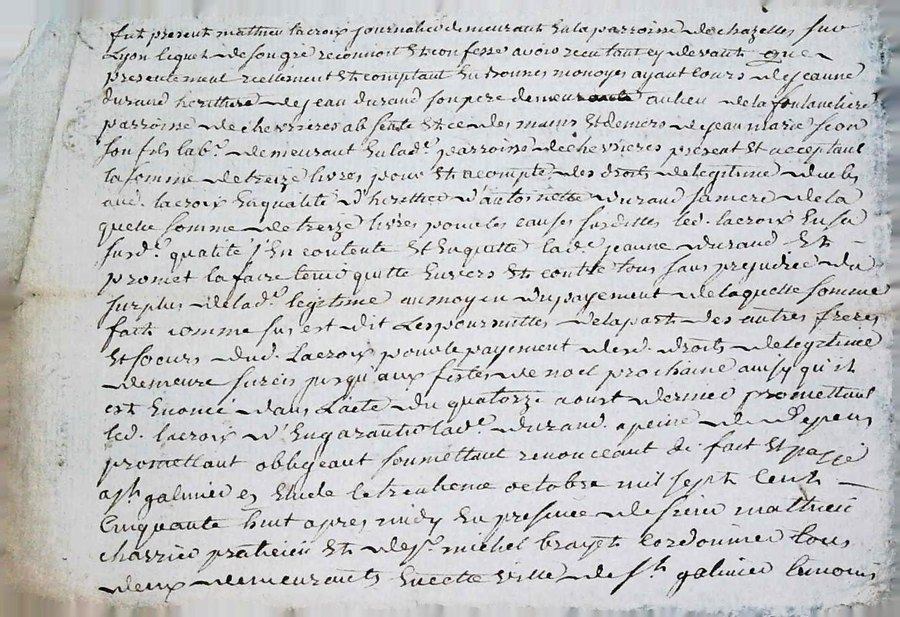 fut present mathieu lacroix journalier demeurant en la parroisse de chazelles sur
Lyon lequel de son gré reconnoit et confesse avoir receu tant cy devant que
presentement reellement et comptant en bonnes monoyes ayant cours de jeanne
durand heritiere de jean durand son pere demeurante au lieu de la fontanchere
parroisse de chevrieres absente et ce des mains et deniers de jean marie
son fils lab.r demeurant en lad.e parroisse de chevrieres présent et acceptant
la somme de treize livres pour et a compte des droits de legitime due
aud. lacroix en qualité d'heritier d'antoinette durand sa mere de la
quelle somme de treize livres pour les causes susdittes led. lacroix en sa
susd.e qualité s'en contente et en quitte lad.e jeanne durand et
promet la faire tenir quitte envers et contre tous sans prejudice du
surplus de lad.e legitime au moyen du payement de laquelle somme
fait comme sus est dit les poursuittes de la part des autres freres
et soeurs dud. Lacroix pour le payement desd. droits de legitime
demeure surcis jusqu'aux fêtes de noel prochaine ainsy qu'il
est enoncé dans l'acte du quatorze aoust dernier promettant
led. lacroix d'en garantir lad.e durand a peine de d. depens
promettant obligeant soumettant renonceant &c fait et passé
a st. galmier en etude le trentieme octobre mil sept cent
cinquante huit apres midy en presence de sieur mathieu
charrier praticien et de s.r michel brayet cordonnier tous
deux demeurants en cette ville de st. galmier temoins